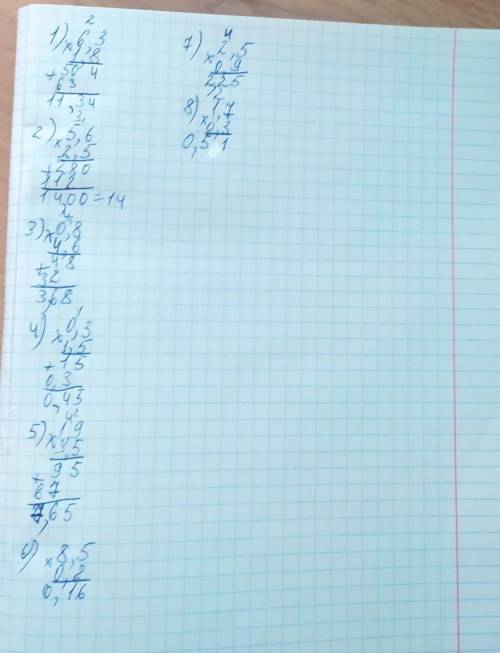 2
1) 6,3
× 1,8
+ 50 4
63
11,34
3
2) × 5,6
2,5
+ 280
112
1400 = 14
3) × 0,8
4,6
+ 48
32
3,68
1
4) × 0,3
1,5
+ 15
0,3
0,45
5) × 19
+ 95
67
7,65
6) × 8,5
0,2
0,16
4
7) × 2,5
0,9
2,25
2
8) × 1,7
0,3
0,51